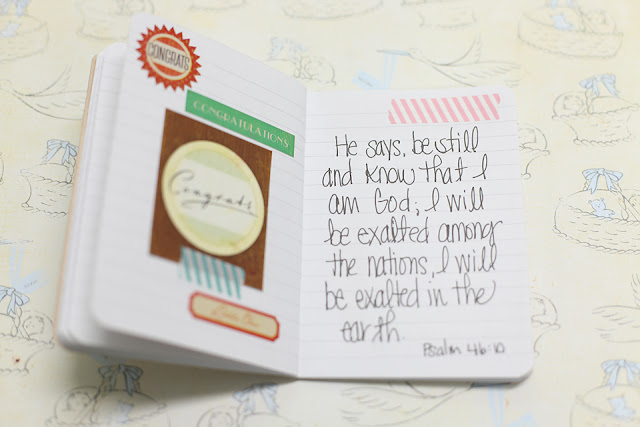 CONGRATS
CONGRATULATIONS
Congrats
He says, be still
and know that I
am God; I will
be exalted among
the nations, I will
be exalted in the
earth.
Psalm 46:10